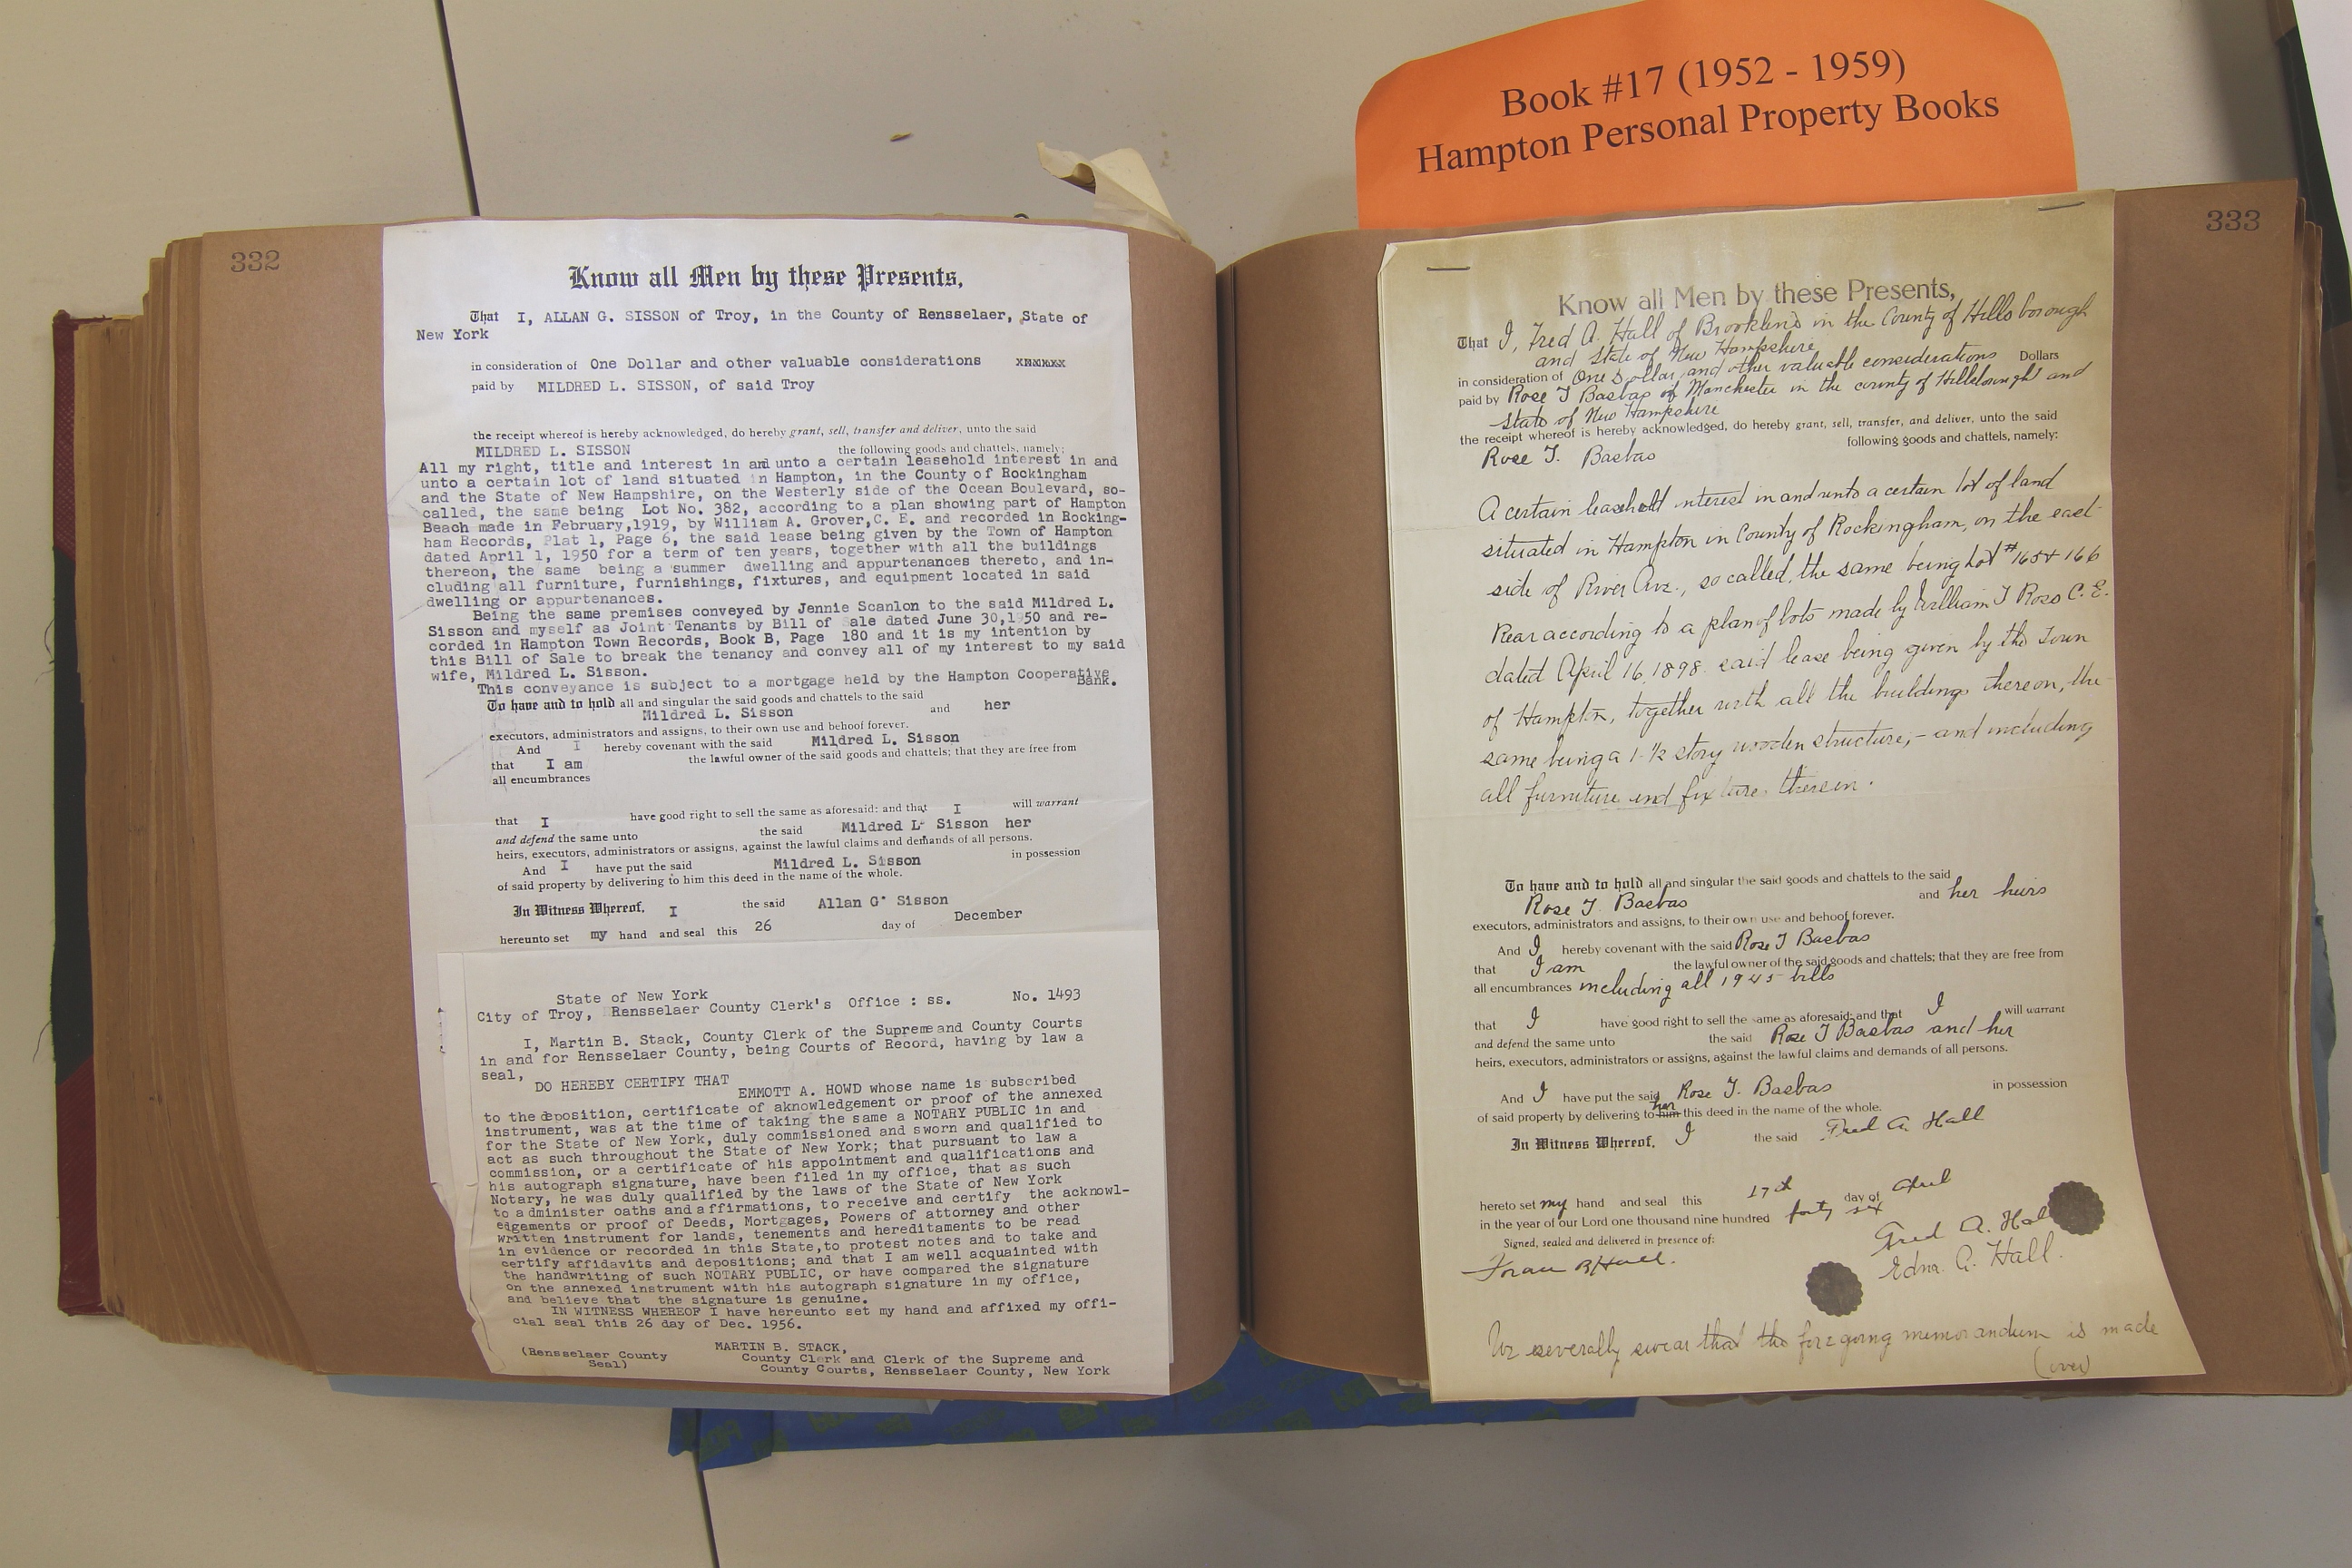 Book #17 (1952 - 1959)
Hampton Personal Property Books
332
Know all Men by these Presents,
That I, ALLAN G. SISSON of Troy, in the County of Rensselaer, State of
New York
in consideration of One Dollar and other valuable considerations
paid by MILDRED L. SISSON, of said Troy
the receipt whereof is hereby acknowledged, do hereby grant, sell, transfer and deliver, unto the said
MILDRED L. SISSON the following goods and chattels, namely:
All my right, title and interest in and unto a certain leasehold interest in and
unto a certain lot of land situated in Hampton, in the County of Rockingham
and the State of New Hampshire, on the Westerly side of the Ocean Boulevard, so-
called, the same being Lot No. 382, according to a plan showing part of Hampton
Beach made in February,1919, by William A. Grover,C. E. and recorded in Rocking-
ham Records, Plat 1, Page 6, the said lease being given by the Town of Hampton
dated April 1, 1950 for a term of ten years, together with all the buildings
thereon, the same being a summer dwelling and appurtenances thereto, and in-
cluding all furniture, furnishings, fixtures, and equipment located in said
dwelling or appurtenances.
Being the same premises conveyed by Jennie Scanlon to the said Mildred L.
Sisson and myself as Joint Tenants by Bill of Sale dated June 30,1950 and re-
corded in Hampton Town Records, Book B, Page 180 and it is my intention by
this Bill of Sale to break the tenancy and convey all of my interest to my said
wife, Mildred L. Sisson.
This conveyance is subject to a mortgage held by the Hampton Cooperative
Bank.
To have and to hold all and singular the said goods and chattels to the said
Mildred L. Sisson and her
executors, administrators and assigns, to their own use and behoof forever.
And I hereby covenant with the said Mildred L. Sisson
that I am the lawful owner of the said goods and chattels; that they are free from
all encumbrances
that I have good right to sell the same as aforesaid: and that I will warrant
and defend the same unto the said Mildred L. Sisson her
heirs, executors, administrators or assigns, against the lawful claims and demands of all persons.
And I have put the said Mildred L. Sisson in possession
of said property by delivering to him this deed in the name of the whole.
In Witness Whereof, I the said Allan G. Sisson
hereunto set my hand and seal this 26 day of December
State of New York
City of Troy, Rensselaer County Clerk's Office : ss. No. 1493
I, Martin B. Stack, County Clerk of the Supreme and County Courts
in and for Rensselaer County, being Courts of Record, having by law a
seal,
DO HEREBY CERTIFY THAT
EMMOTT A. HOWD whose name is subscribed
to the deposition, certificate of aknowledgement or proof of the annexed
instrument, was at the time of taking the same a NOTARY PUBLIC in and
for the State of New York, duly commissioned and sworn and qualified to
act as such throughout the State of New York; that pursuant to law a
commission, or a certificate of his appointment and qualifications and
his autograph signature, have been filed in my office, that as such
Notary, he was duly qualified by the laws of the State of New York
to administer oaths and affirmations, to receive and certify the acknowl-
edgements or proof of Deeds, Mortgages, Powers of attorney and other
written instrument for lands, tenements and hereditaments to be read
in evidence or recorded in this State,to protest notes and to take and
certify affidavits and depositions; and that I am well acquainted with
the handwriting of such NOTARY PUBLIC, or have compared the signature
on the annexed instrument with his autograph signature in my office,
and believe that the signature is genuine.
IN WITNESS WHEREOF I have hereunto set my hand and affixed my offi-
cial seal this 26 day of Dec. 1956.
MARTIN B. STACK,
(Rensselaer County County Clerk and Clerk of the Supreme and
Seal) County Courts, Rensselaer County, New York
333
Know all Men by these Presents,
That I, Fred A. Hall of Brookline in the County of Hillsborough
and State of New Hampshire
in consideration of One Dollar and other valuable considerations Dollars
paid by Rose T Basbas of Manchester in the county of Hillsborough and
State of New Hampshire
the receipt whereof is hereby acknowledged, do hereby grant, sell, transfer, and deliver, unto the said
Rose T. Basbas following goods and chattels, namely:
A certain leasehold interest in and unto a certain lot of land
situated in Hampton in County of Rockingham, on the east
side of River Ave., so called, the same being Lot #165+166
Rear according to a plan of lots made by William T Ross C. E.
dated April 16, 1898. said lease being given by the Town
of Hampton, together with all the buildings thereon, the
same being a 1-½ story wooden structure, - and including
all furniture and fixtures therein.
To have and to hold all and singular the said goods and chattels to the said
Rose T. Basbas and her heirs
executors, administrators and assigns, to their own use and behoof forever.
And I hereby covenant with the said Rose T Basbas
that I am the lawful owner of the said goods and chattels; that they are free from
all encumbrances including all 1945 bills
that I have good right to sell the same as aforesaid: and that I will warrant
and defend the same unto the said Rose T Basbas and her
heirs, executors, administrators or assigns, against the lawful claims and demands of all persons.
And I have put the said Rose T. Basbas in possession
of said property by delivering to him her this deed in the name of the whole.
In Witness Whereof, I the said Fred A. Hall
hereto set my hand and seal this 17th day of April
in the year of our Lord one thousand nine hundred forty six
Signed, sealed and delivered in presence of:
Fred A. Hall
Hall.
Edna G. Hall.
We severally swear that the foregoing memorandum is made
(over)